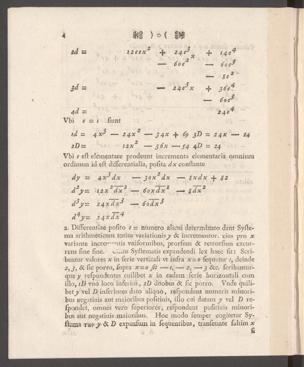 4 ) o (
2d = 12eex² + 24e³ + 14e⁴
— 60e²x — 60e³
— 5e²
3d = — 24e³x + 36e⁴
— 60e³
4d = 24e⁴
Vbi e = 1 sunt
1d = 4x³ — 24x² — 34x + 69 3D = 24x — 24
2D = 12x² — 36x — 54 4D = 24
Vbi e est elementare prodeunt incrementa elementaria omnium
ordinum id est differentialia, posita dx constante
dy = 4x³dx — 30x²dx — 5xdx + 82
d²y = 12x²dx² — 60xdx² — 5dx²
d³y = 24xdx³ — 60dx³
d⁴y = 24xdx⁴
2. Differentiae posito e = numero alicui determinato dent Syste-
ma arithmeticum totius variationis y & incrementor. eius pro x
variante incrementis vniformibus, prorsum & retrorsum excur-
rens sine fine. Systematis expendendi lex haec sit: Scri-
bantur valores x in serie verticali vt infra x=0 sequitur 1, deinde
2, 3, & sic porro, supra x=0 sit —1, — 2, — 3 &c. scribantur-
que y respondentes cuilibet x in eadem serie horizontali cum
illo, 1D vno loco inferius, 2D duobus & sic porro. Vnde quili-
bet y vel D inferiores dato aliquo, respondent numeris minori-
bus negatiuis aut maioribus positiuis, illo cui datum y vel D re-
spondet, omnes vero superiores, respondent positiuis minori-
bus aut negatiuis maioribus. Hoc modo semper cogitetur Sy-
stema y & D expansum in sequentibus, transeunte saltim x